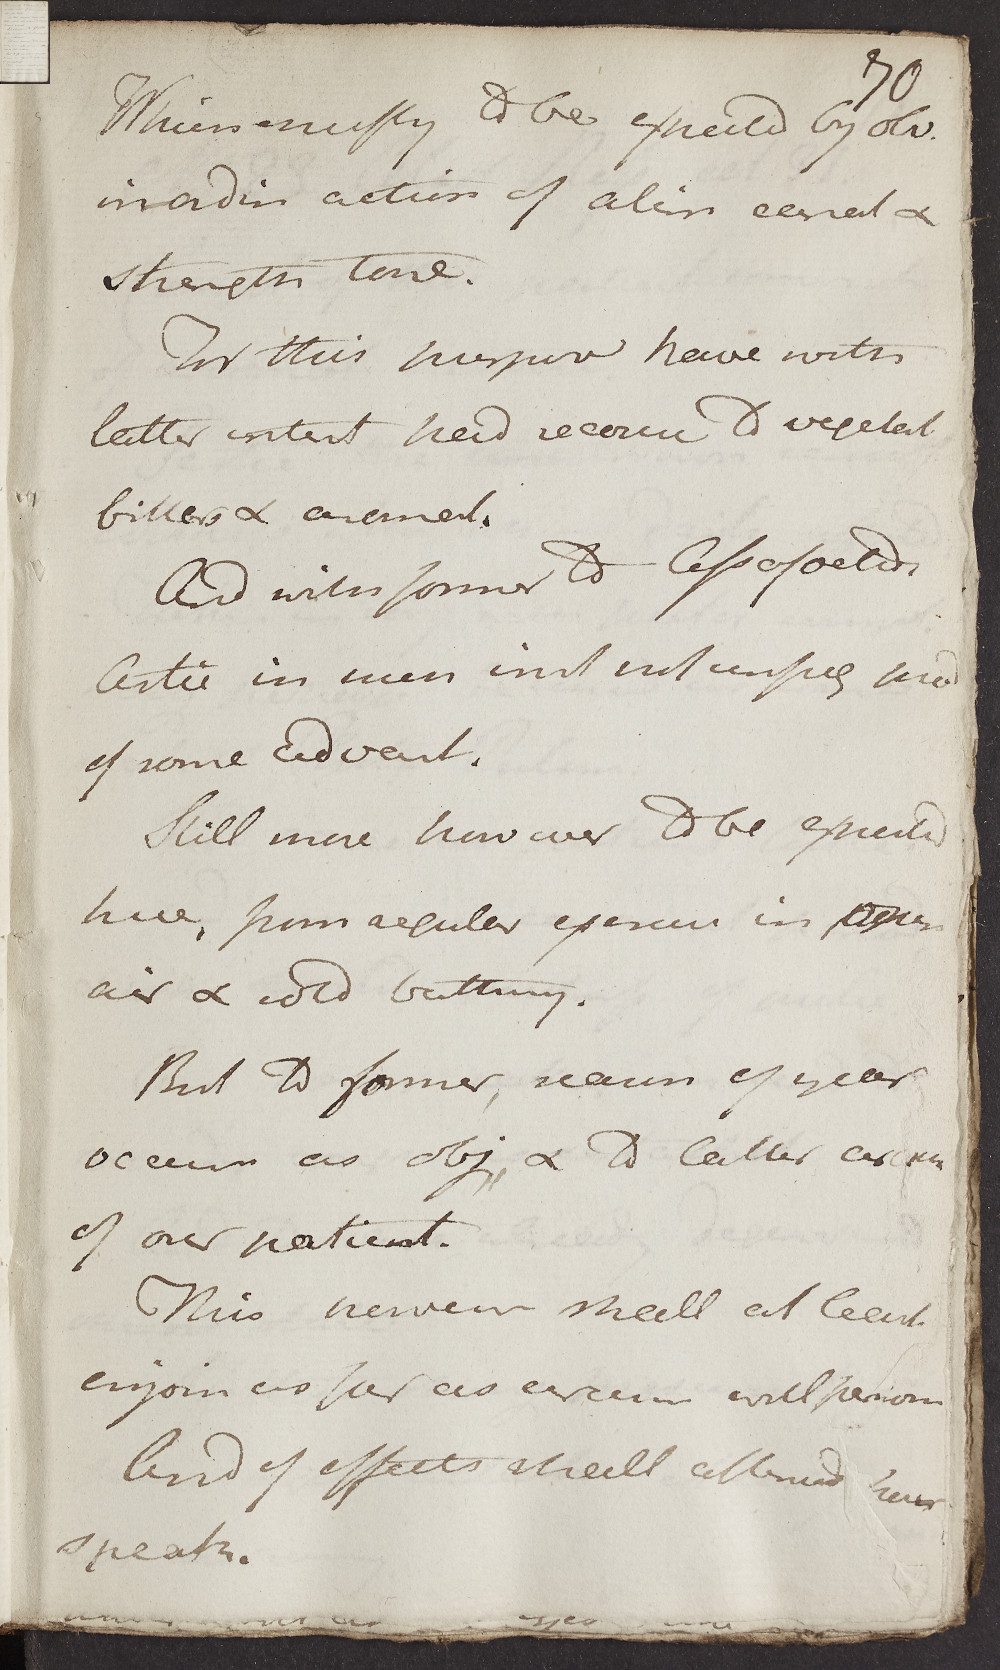 70
to be by obv.
action of alim canal &
strength tone.
For this purpose have with
latter intent had recourse to vegetabl
bitters & aromat.
And with former to Assafoetida
in not prod
of some advant.
Still more however to be expected
here, from regular exercise in open
air & cold bathing.
But to former, season of year
occurs as obj, & to latter circum
of our patient.
This however shall at least
enjoin as far as circum will permit
And of effects shall afterward hear
speak.